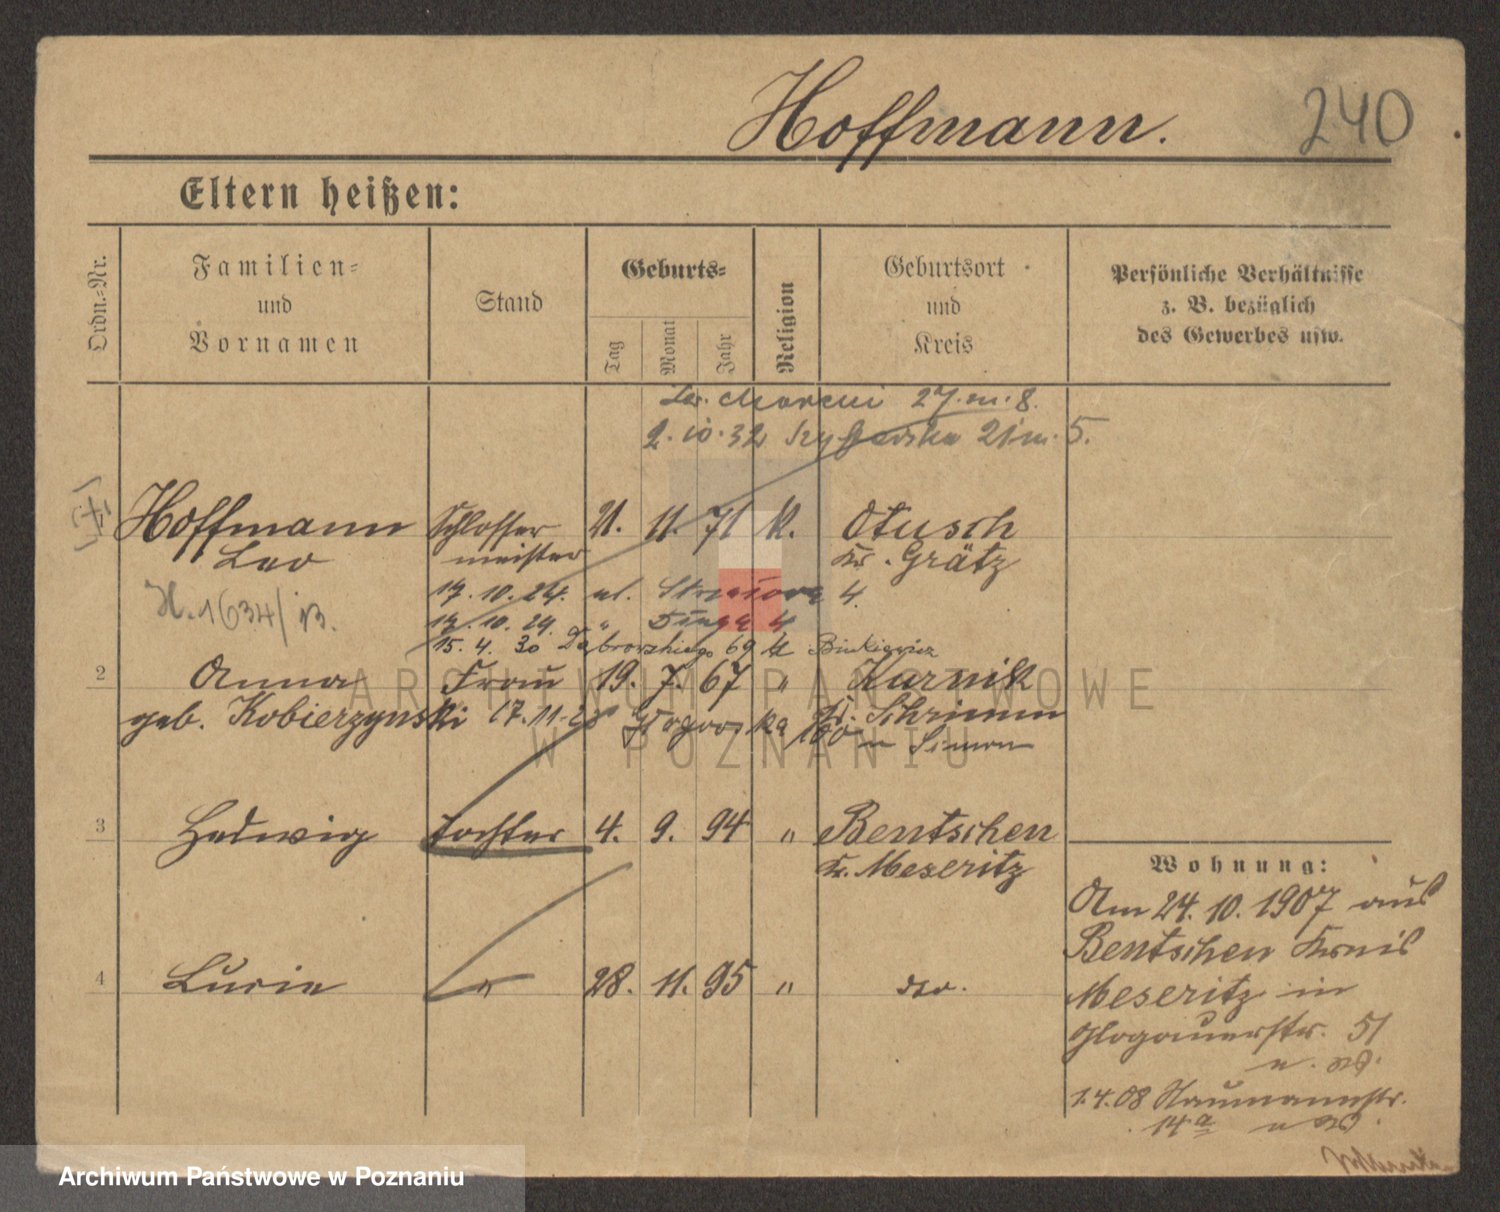 Hoffmann. 240
Eltern heißen:
Ordn.-Nr.
Familien-
und
Vornamen
Stand
Geburts-
Tag
Monat
Jahr
Religion
Geburtsort
und
Kreis
Persönliche Verhältnisse
z. B. bezüglich
des Gewerbes usw.
27. m. 8.
2. 10. 32 21 m. 5.
Hoffmann Schlosser 21. 11. 71 k. Otusch
Leo meister Kr. Grätz
17. 10. 24. ul. 4.
H. 1634/
10. 29. " Długa 4
15. 4. 30 Dąbrowskiego 69 Binkiewicz
2 Anna Frau 19. 7. 67 " Kurnik
geb. Kobierzynski 17. 11. 28 Kr. Schrimm
Simon
3 Hedwig Tochter 4. 9. 94 " Bentschen
Kr. Meseritz
4 Lucie " 28. 11. 95 " do.
Wohnung:
Am 24. 10. 1907 aus
Bentschen Kreis
Meseritz in
Glogauerstr. 51
1. 4. 08 Naumannstr.
14a
ARCHIWUM PAŃSTWOWE
W POZNANIU
Archiwum Państwowe w Poznaniu